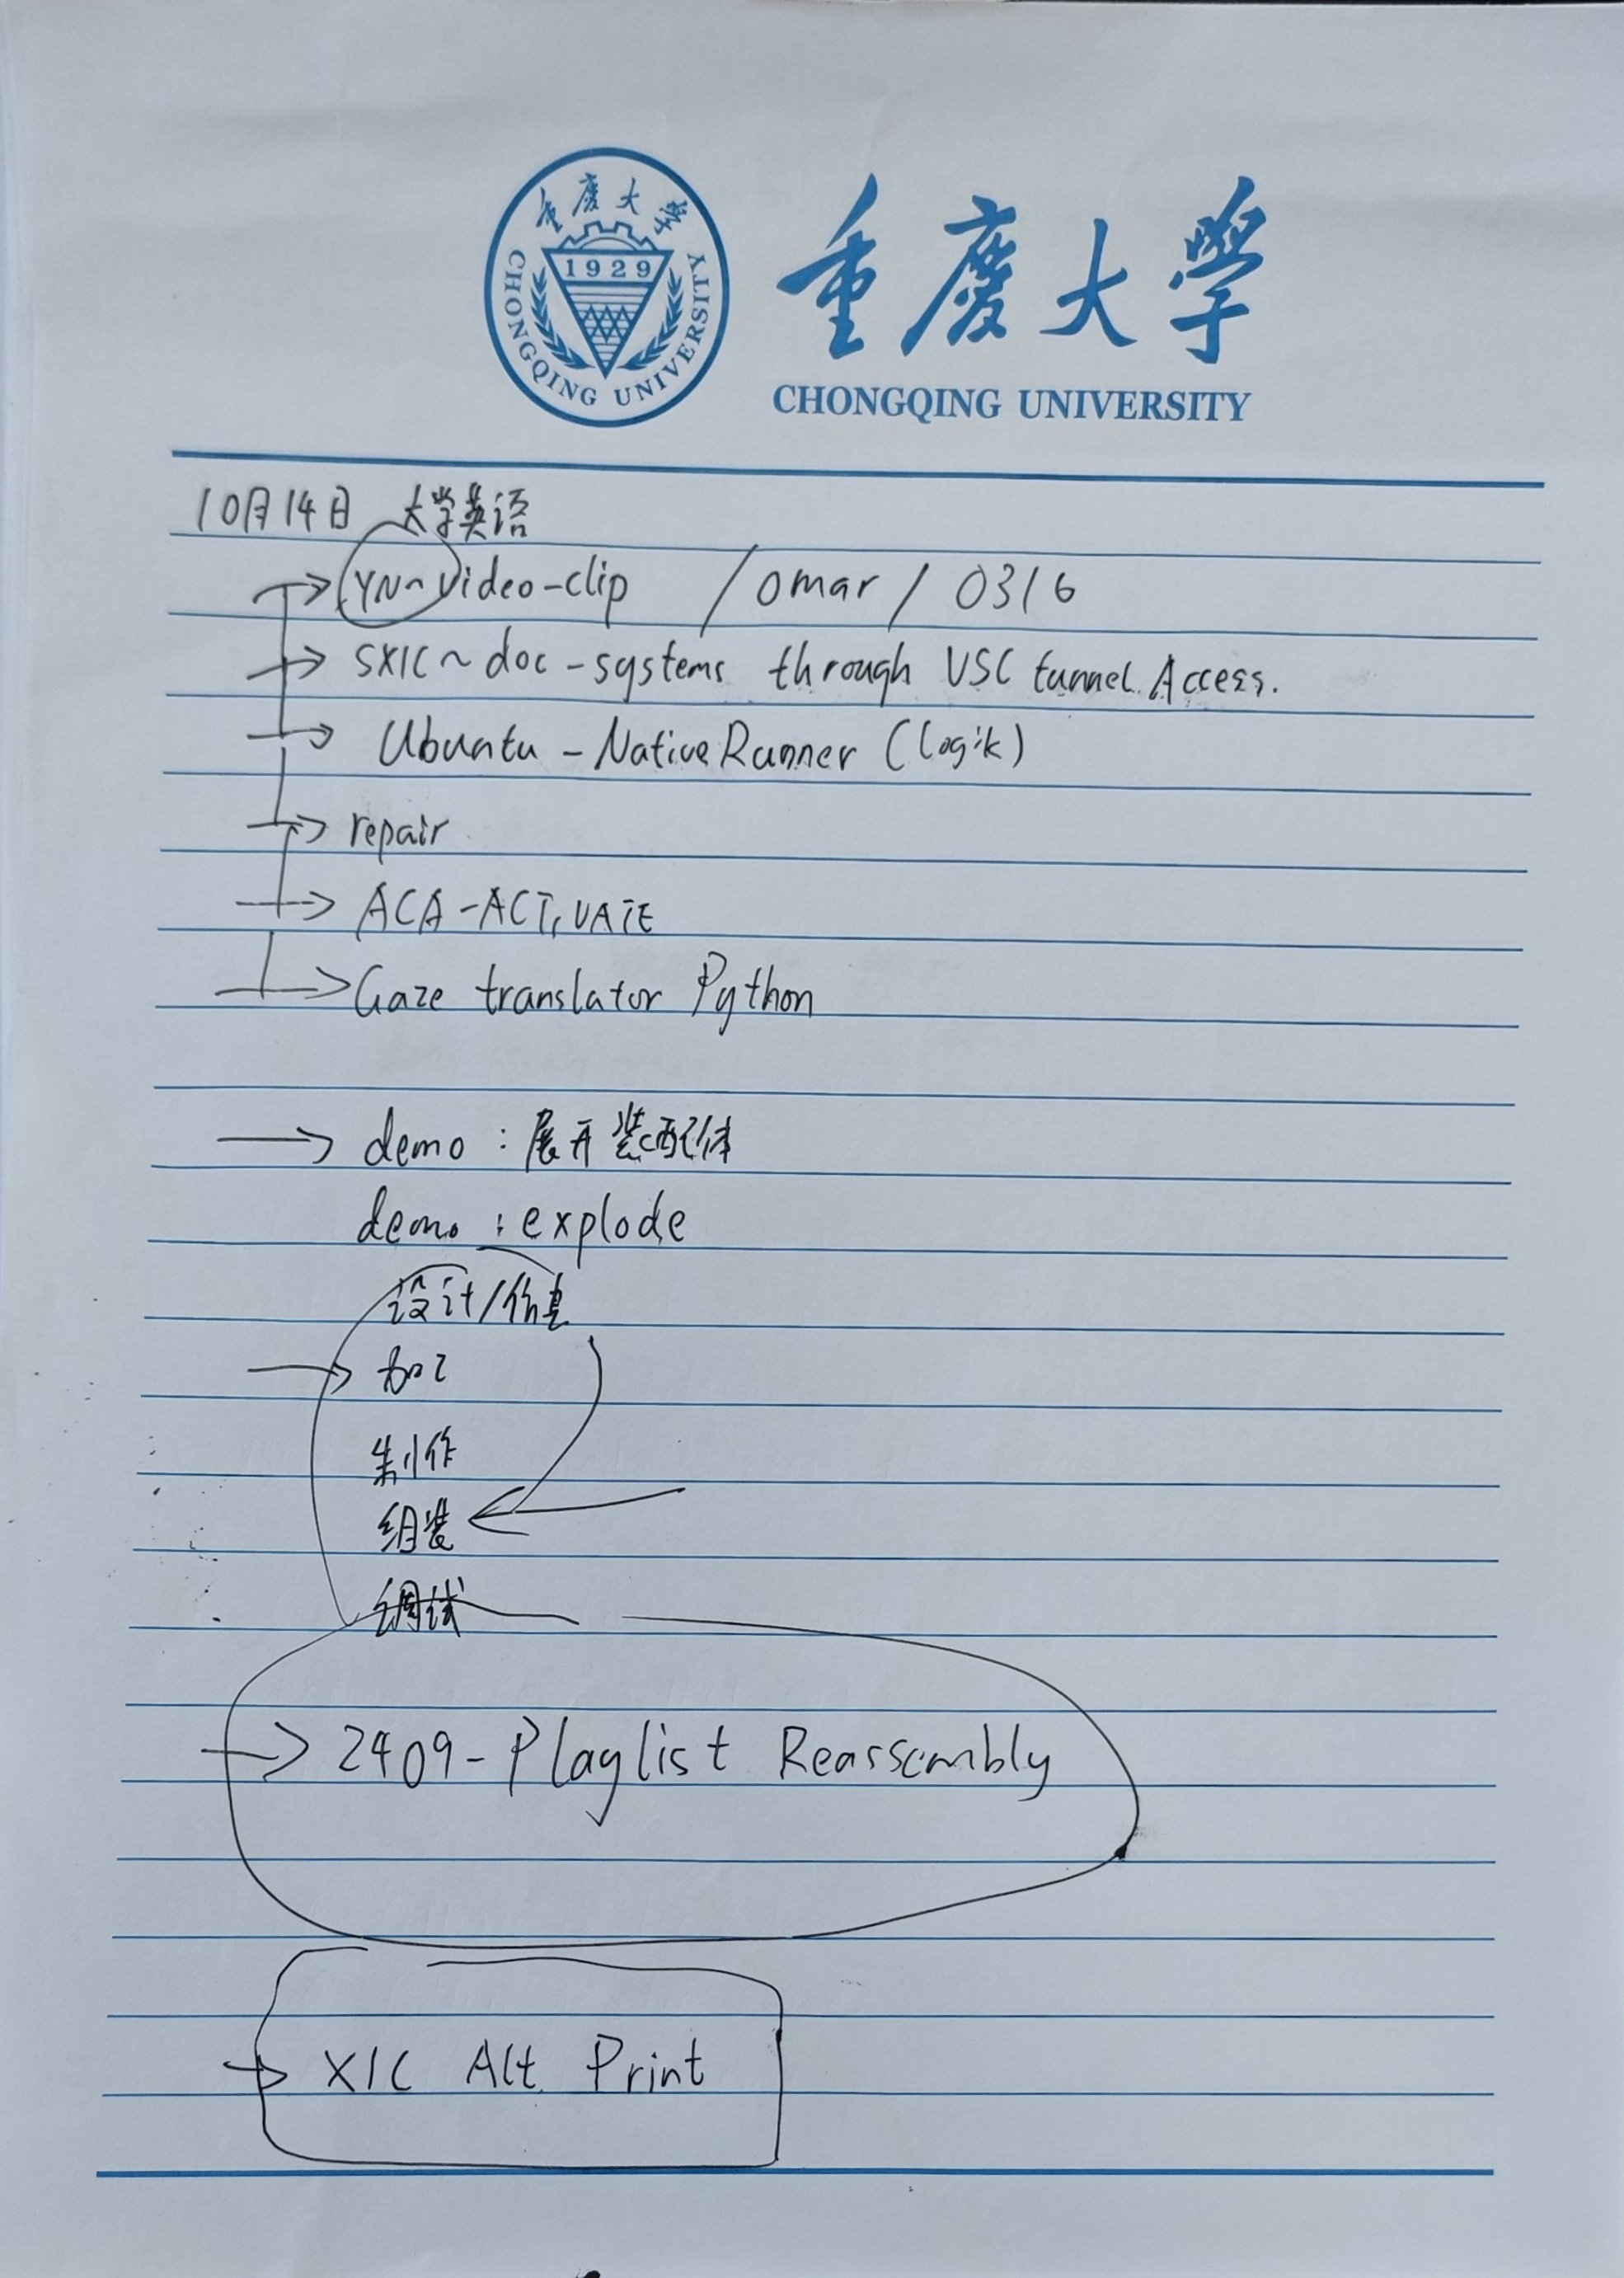 重庆大学
1929
CHONGQING UNIVERSITY
重慶大學
CHONGQING UNIVERSITY
10月14日 大学英语
→ YN~Video-clip / omar / 0316
→ SXIC ~ doc-systems through VSC tunnel Access.
→ Ubuntu - NativeRunner (Logik)
→ repair
→ ACA-ACTIVATE
→ Gaze translator Python
→ demo : 展开装配体
demo : explode
设计/仿真
→ 加工
制作
组装 ←
调试
→ 2409-Playlist Reassembly
→ XIC Alt Print